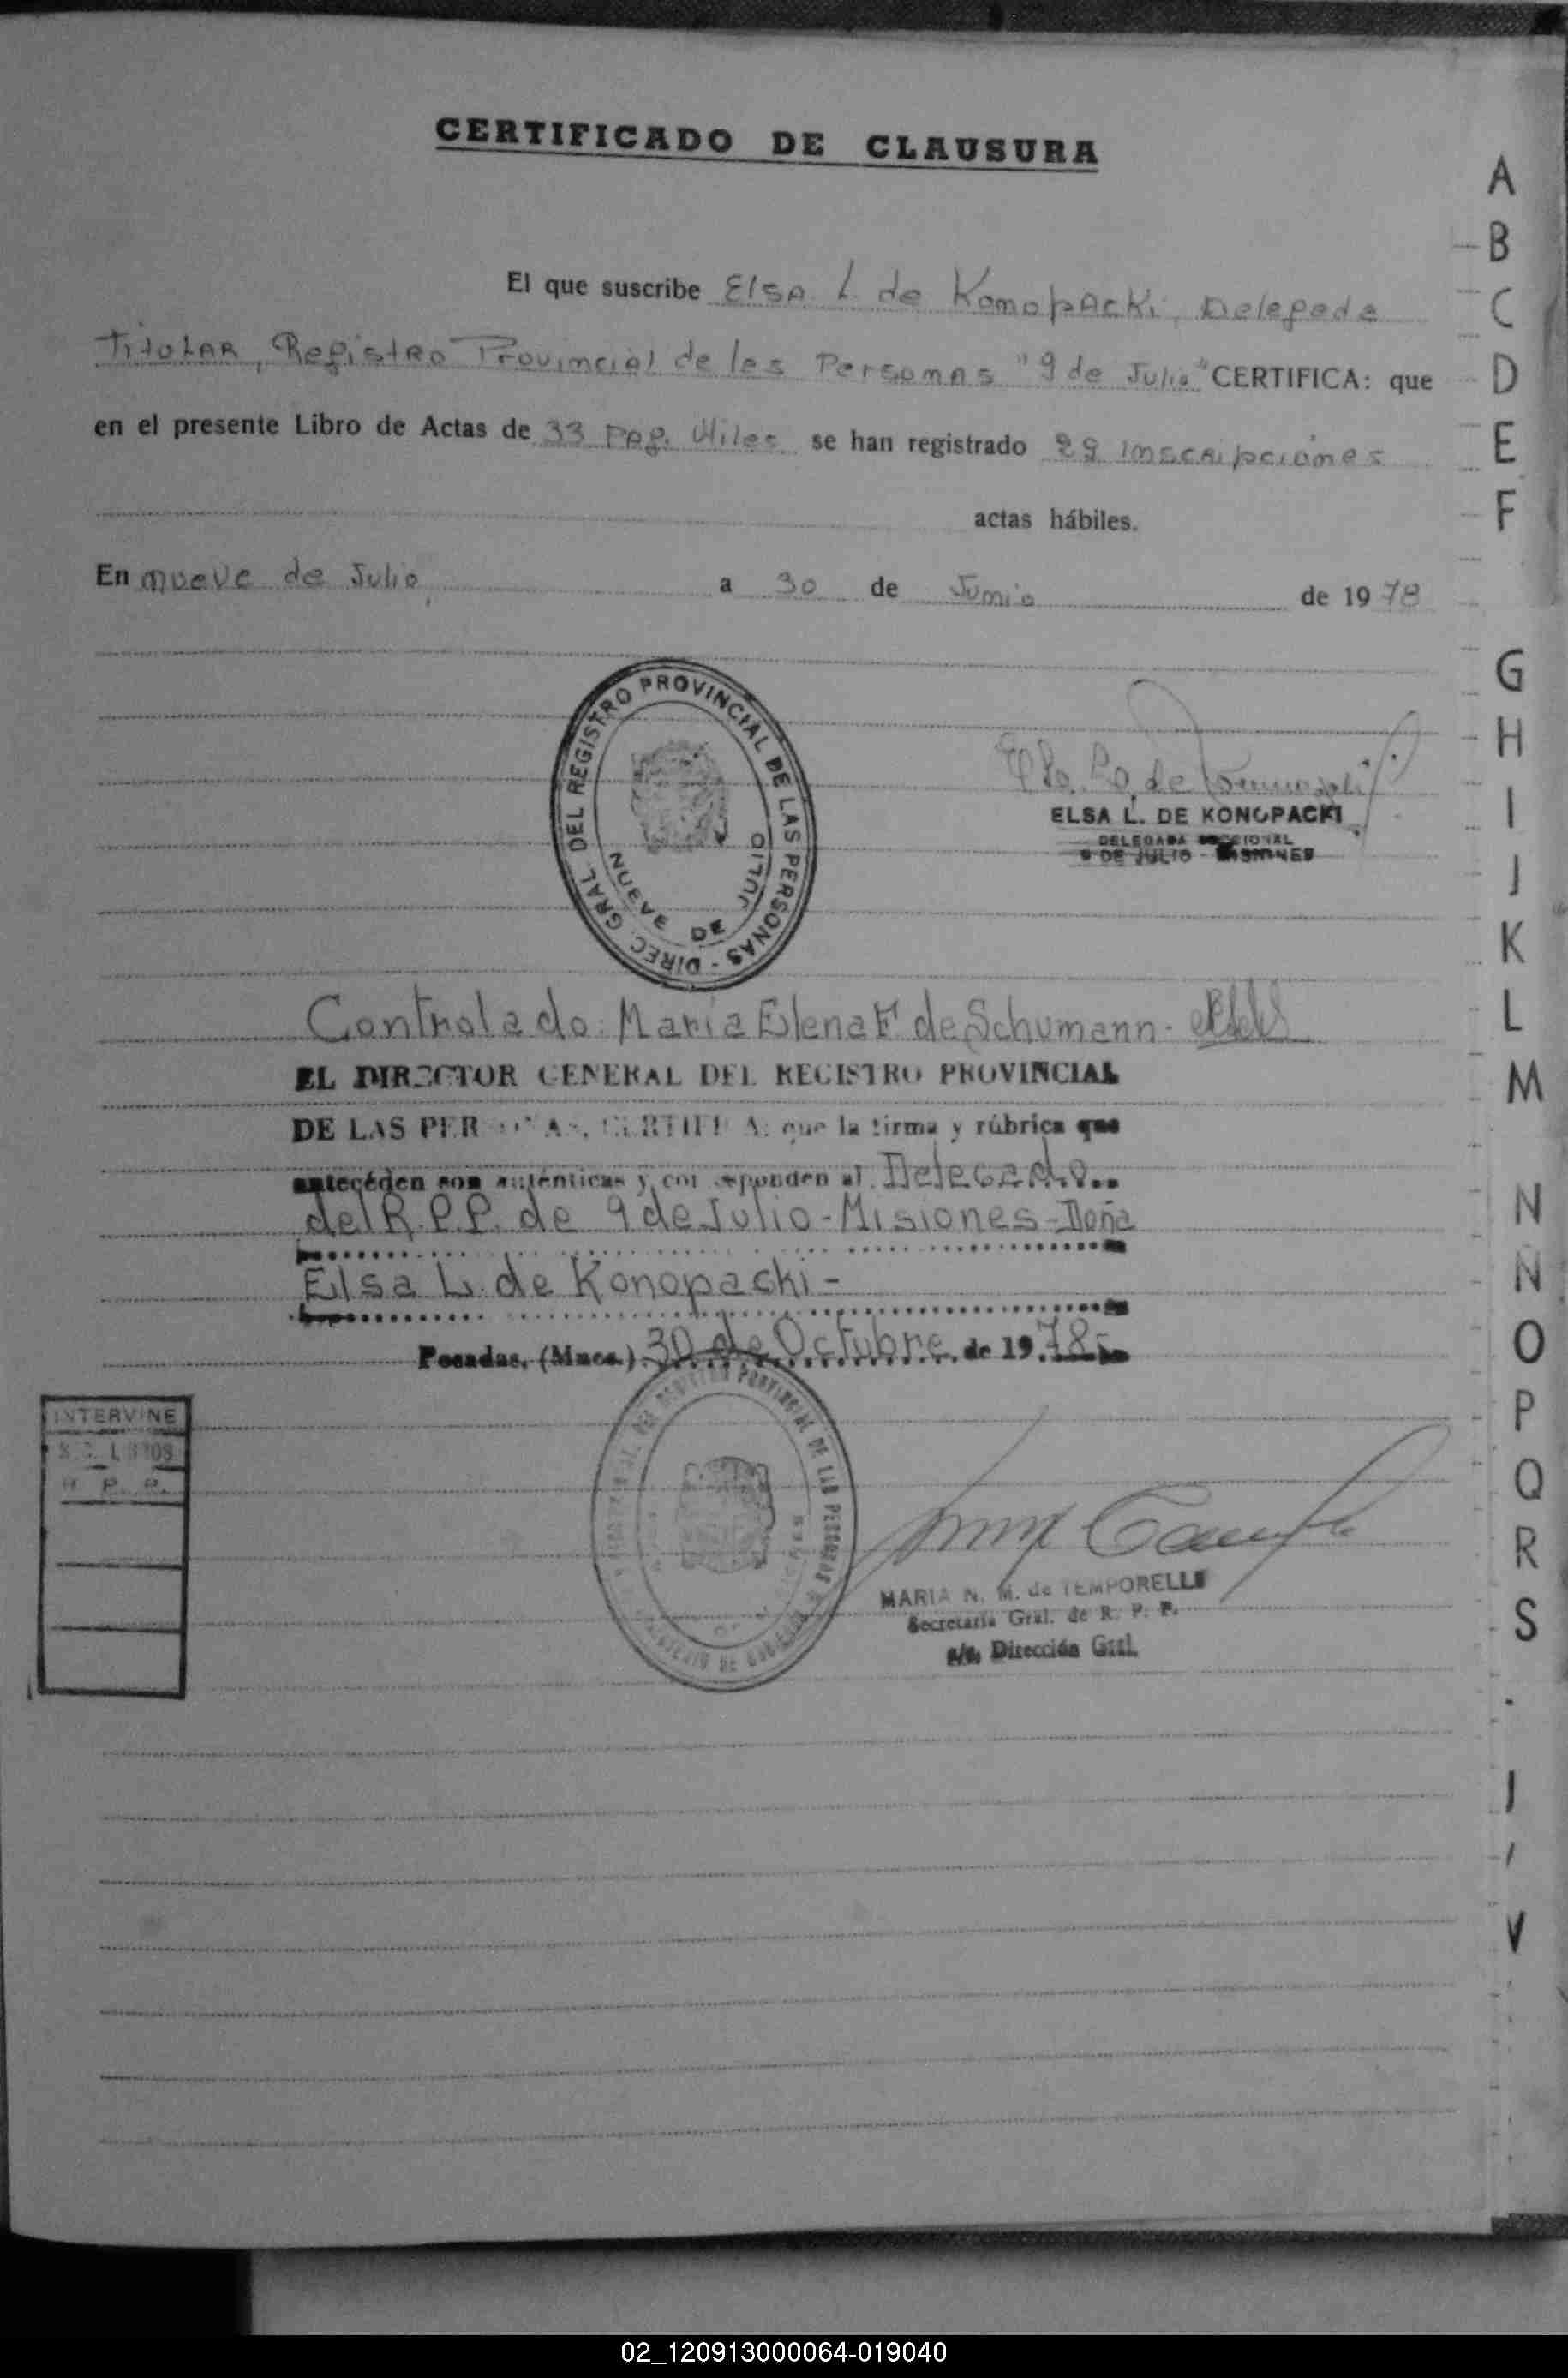 CERTIFICADO DE CLAUSURA
El que suscribe Elsa L. de Konopacki, Delegada
Titular, Registro Provincial de las Personas "9 de Julio" CERTIFICA: que
en el presente Libro de Actas de 33 pag. utiles se han registrado 29 inscripciones
actas hábiles.
En nueve de Julio, a 30 de Junio de 1978
DIREC. GRAL. DEL REGISTRO PROVINCIAL DE LAS PERSONAS -
NUEVE DE JULIO
ELSA L. DE KONOPACKI
DELEGADA SECCIONAL
9 DE JULIO - MISIONES
Controlado: Maria Elena F. de Schumann.
EL DIRECTOR GENERAL DEL REGISTRO PROVINCIAL
DE LAS PERSONAS, CERTIFICA: que la firma y rúbrica que
anteceden son auténticas y corresponden al Delegado
del R.P.P. de 9 de Julio - Misiones - Doña
Elsa L. de Konopacki -
Posadas, (Mnes.) 30 de Octubre de 1978
INTERVINE
R. P. P.
MARIA N. M. de TEMPORELLI
Secretaria Gral. de R. P. P.
a/c. Dirección Gral.
A
B
C
D
E
F
G
H
I
J
K
L
M
N
Ñ
O
P
Q
R
S
V
02_120913000064-019040